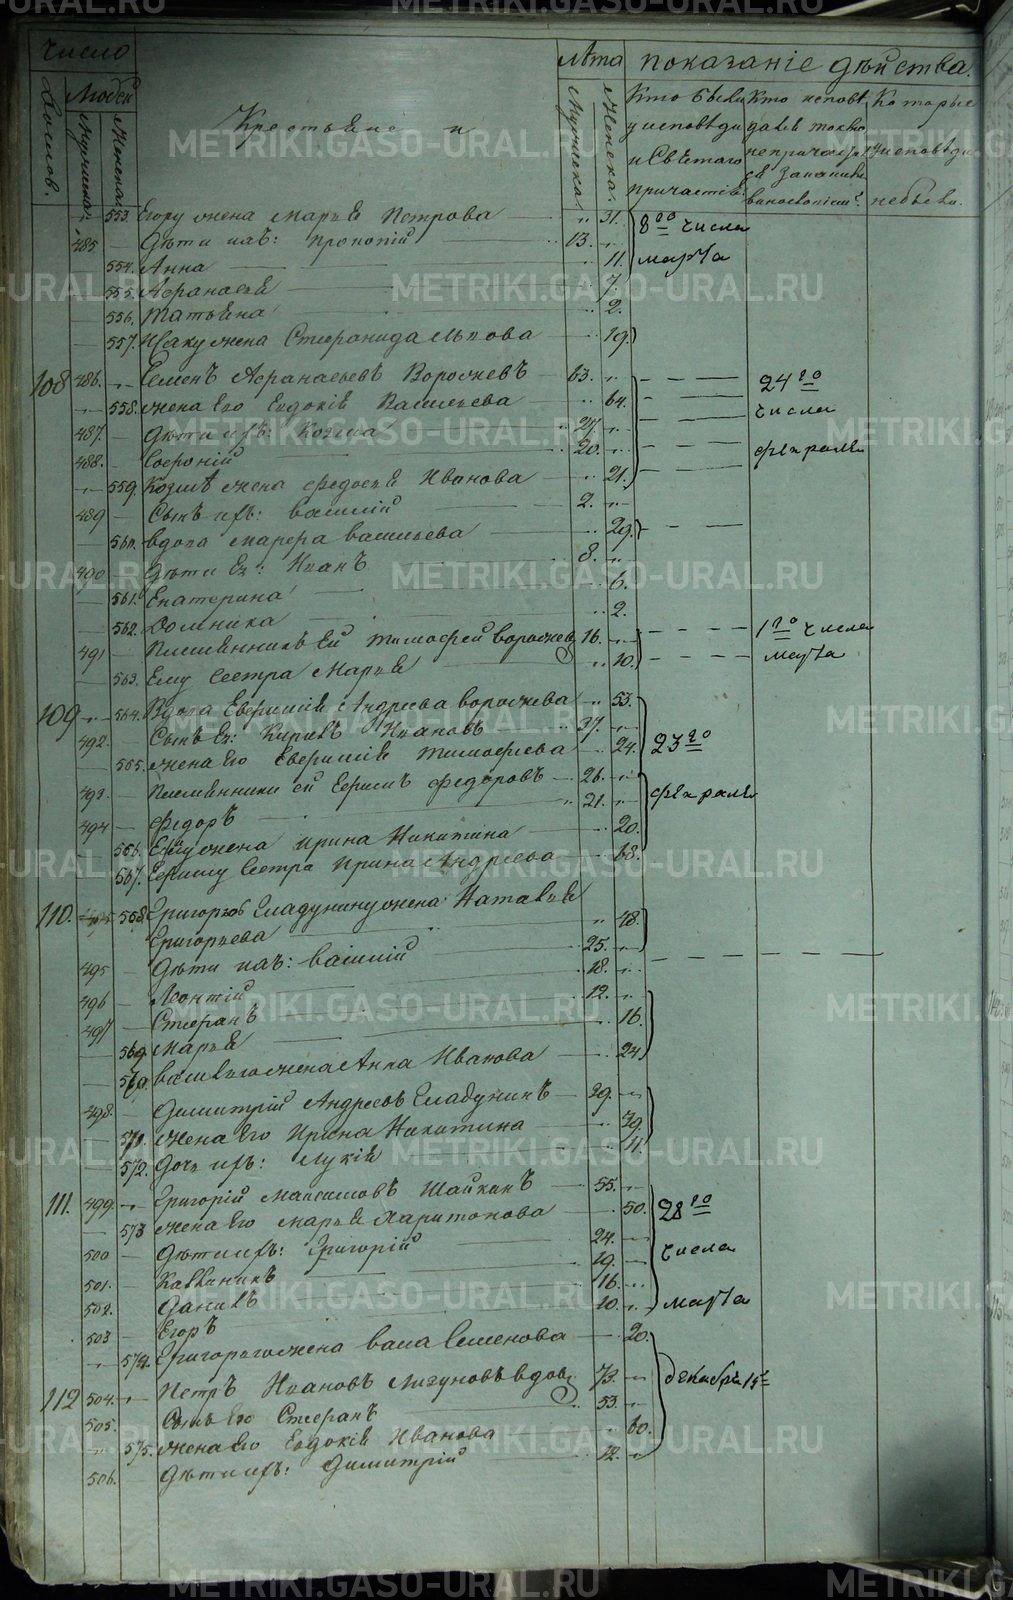 число
Лѣта
показаніе дѣйства.
Домовъ.
Людей
Мужеска.
Женска.
Крестьяне и
Мужеска.
Женска.
Кто были у исповѣди и Святаго причастія.
Кто исповѣдался токмо
Которые у исповѣди не были.
553. Егору жена Марья Петрова 31. 8го числа
485 Дѣти ихъ: Прокопій 13.
554. Анна 11. марта
555. Афанасья 7.
556. Татьяна 2.
557. Исаку жена Стефанида Львова 19
108 486. Семенъ Афанасьевъ Ворожевъ 63. 24го
558. жена Его Евдокія Васильева 64. числа
487. Дѣти ихъ: Козма 27.
488. Софроній 20. февраля
559. Козмѣ жена Федосья Иванова 21.
489 Сынъ ихъ: Василій 2.
560. вдова Марфа Васильева 29.
490 Дѣти Ея: Иванъ 8.
561. Екатерина 6.
562. Домника 2.
491 Племянникъ Ей Тимофей Ворожев 16. 1го числа
563. Ему Сестра Марья 10. марта
109 564. Вдова Евфимія Андреева Ворожева 53.
492. Сынъ Ея: Кирилъ Ивановъ 37.
565. жена Его Евфимія Тимофеева 24. 23го
493. Племянники ей Ефимъ Федоровъ 26.
494 Федоръ 21. февраля
566. Ефиму жена Ирина Никитина 20.
567. Ефиму Сестра Ирина Андреева 68.
110. 568. Григорью Гладунину жена Наталья
Григорьева 48.
495 Дѣти ихъ: Василій 25.
496 Леонтій 18.
497 Стефанъ 12.
569. Марья 16.
570. Василью жена Анна Иванова 24
498. Димитрій Андреевъ Гладунинъ 39.
571. жена Его Ирина Никитина 39.
572. Дочь ихъ: Лукія 11.
111. 499. Григорій Максимовъ Шайкинъ 55.
573 жена Его Марья Харитонова 50. 28го
500 Дѣти ихъ: Григорій 24. числа
501. Калиникъ 19.
502. Данилъ 16. марта
503 Егоръ 10.
574. Григорью жена Васса Семенова 20.
112 504. Петръ Ивановъ Лизуновъ вдов. 73. декабрь 15
505. Сынъ Его Стефанъ 53.
575. жена Его Евдокія Иванова 60.
506. Дѣти ихъ: Димитрій 12.
METRIKI.GASO-URAL.RU